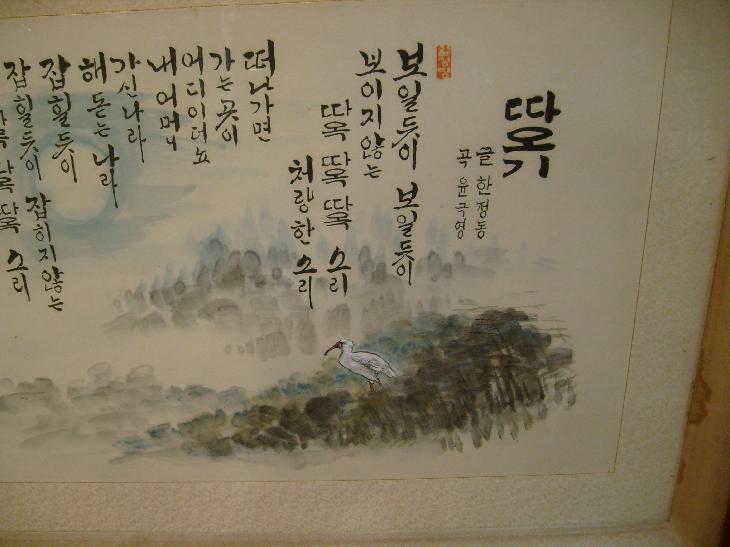 따오기
글 한정동
곡 윤극영
보일듯이 보일듯이
보이지않는
따옥 따옥 따옥 소리
처량한 소리
떠나가면
가는곳이
어디이더뇨
내어머니
가신나라
해돋는 나라
잡힐듯이
잡힐듯이
잡히지않는
따옥 따옥 소리